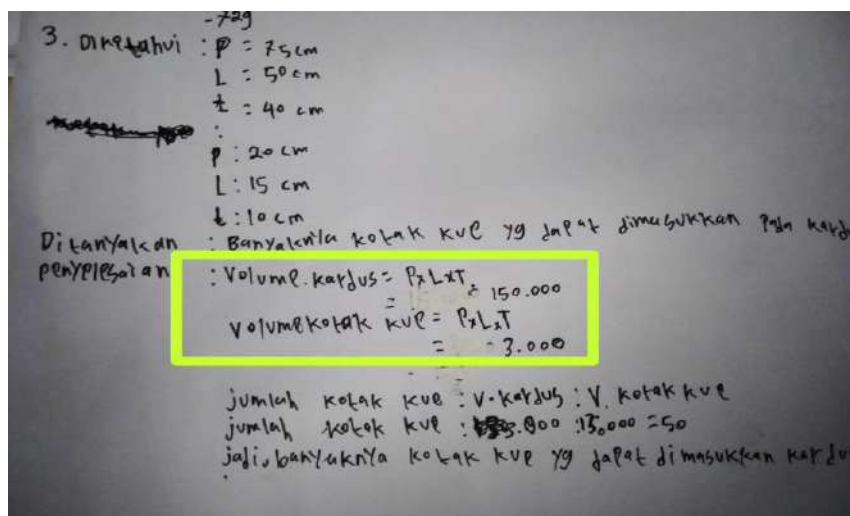 -729
3. Diketahui : P = 75 cm
L = 50 cm
t = 40 cm
:
P : 20 cm
L : 15 cm
t : 10 cm
Ditanyakan : Banyaknya kotak kue yg dapat dimasukkan pada kardu
penyelesaian : Volume. kardus = PxLxT
= 150.000
Volume kotak kue = PxLxT
= 3.000
jumlah kotak kue : V. kardus : V. kotak kue
jumlah kotak kue : .000 : 15.000 = 50
jadi, banyaknya kotak kue yg dapat dimasukkan kardu